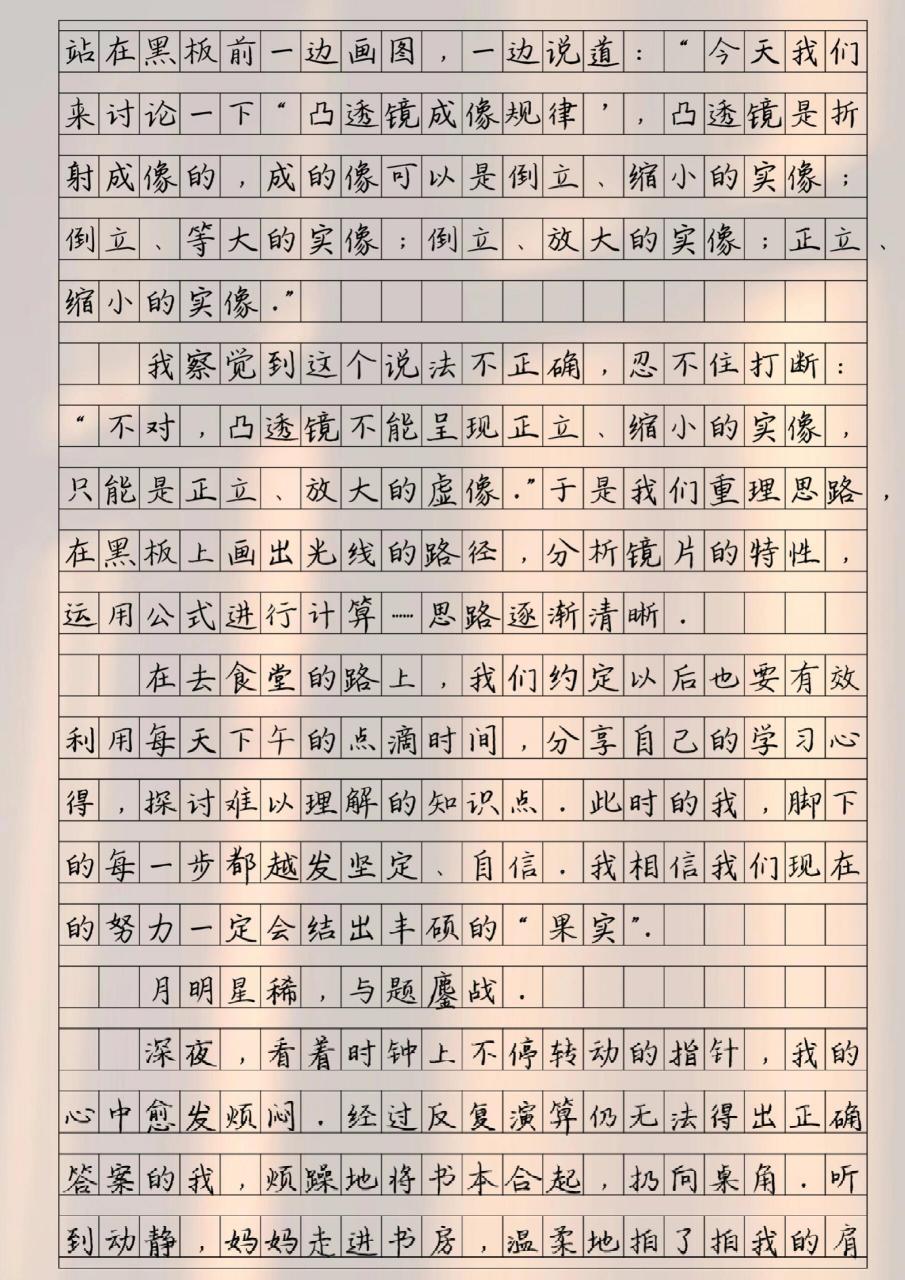 站在黑板前一边画图，一边说道：“今天我们
来讨论一下“凸透镜成像规律’，凸透镜是折
射成像的，成的像可以是倒立、缩小的实像；
倒立、等大的实像；倒立、放大的实像；正立、
缩小的实像．”
我察觉到这个说法不正确，忍不住打断：
“不对，凸透镜不能呈现正立、缩小的实像，
只能是正立、放大的虚像．”于是我们重理思路，
在黑板上画出光线的路径，分析镜片的特性，
运用公式进行计算……思路逐渐清晰．
在去食堂的路上，我们约定以后也要有效
利用每天下午的点滴时间，分享自己的学习心
得，探讨难以理解的知识点．此时的我，脚下
的每一步都越发坚定、自信．我相信我们现在
的努力一定会结出丰硕的“果实”．
月明星稀，与题鏖战．
深夜，看着时钟上不停转动的指针，我的
心中愈发烦闷．经过反复演算仍无法得出正确
答案的我，烦躁地将书本合起，扔向桌角．听
到动静，妈妈走进书房，温柔地拍了拍我的肩